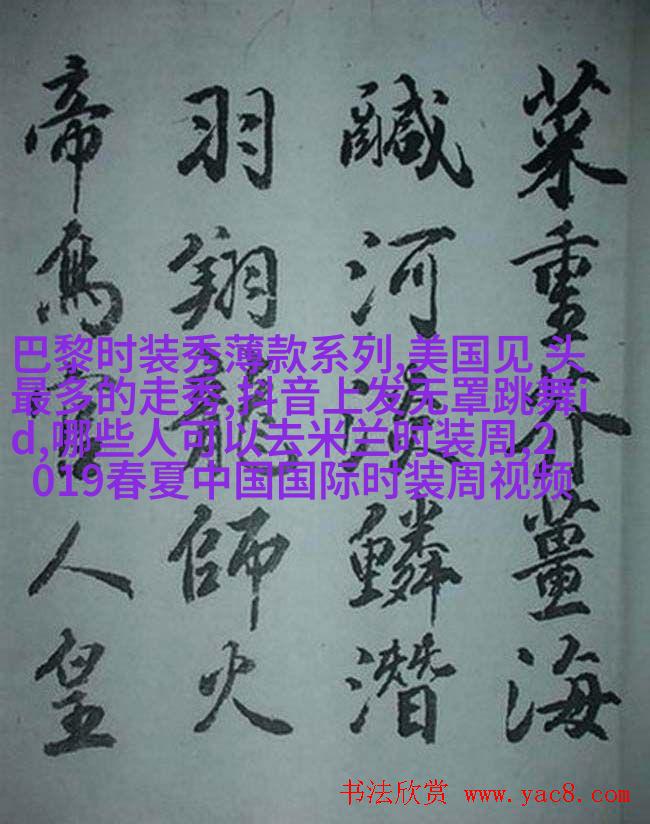 菜重芥薑海
鹹河淡鱗潛
羽翔龍師火
帝鳥官人皇
巴黎时装秀薄款系列,美国见 头
最多的走秀,抖音上发无罩跳舞i
d,哪些人可以去米兰时装周,2
019春夏中国国际时装周视频
书法欣赏 www.yac8.com